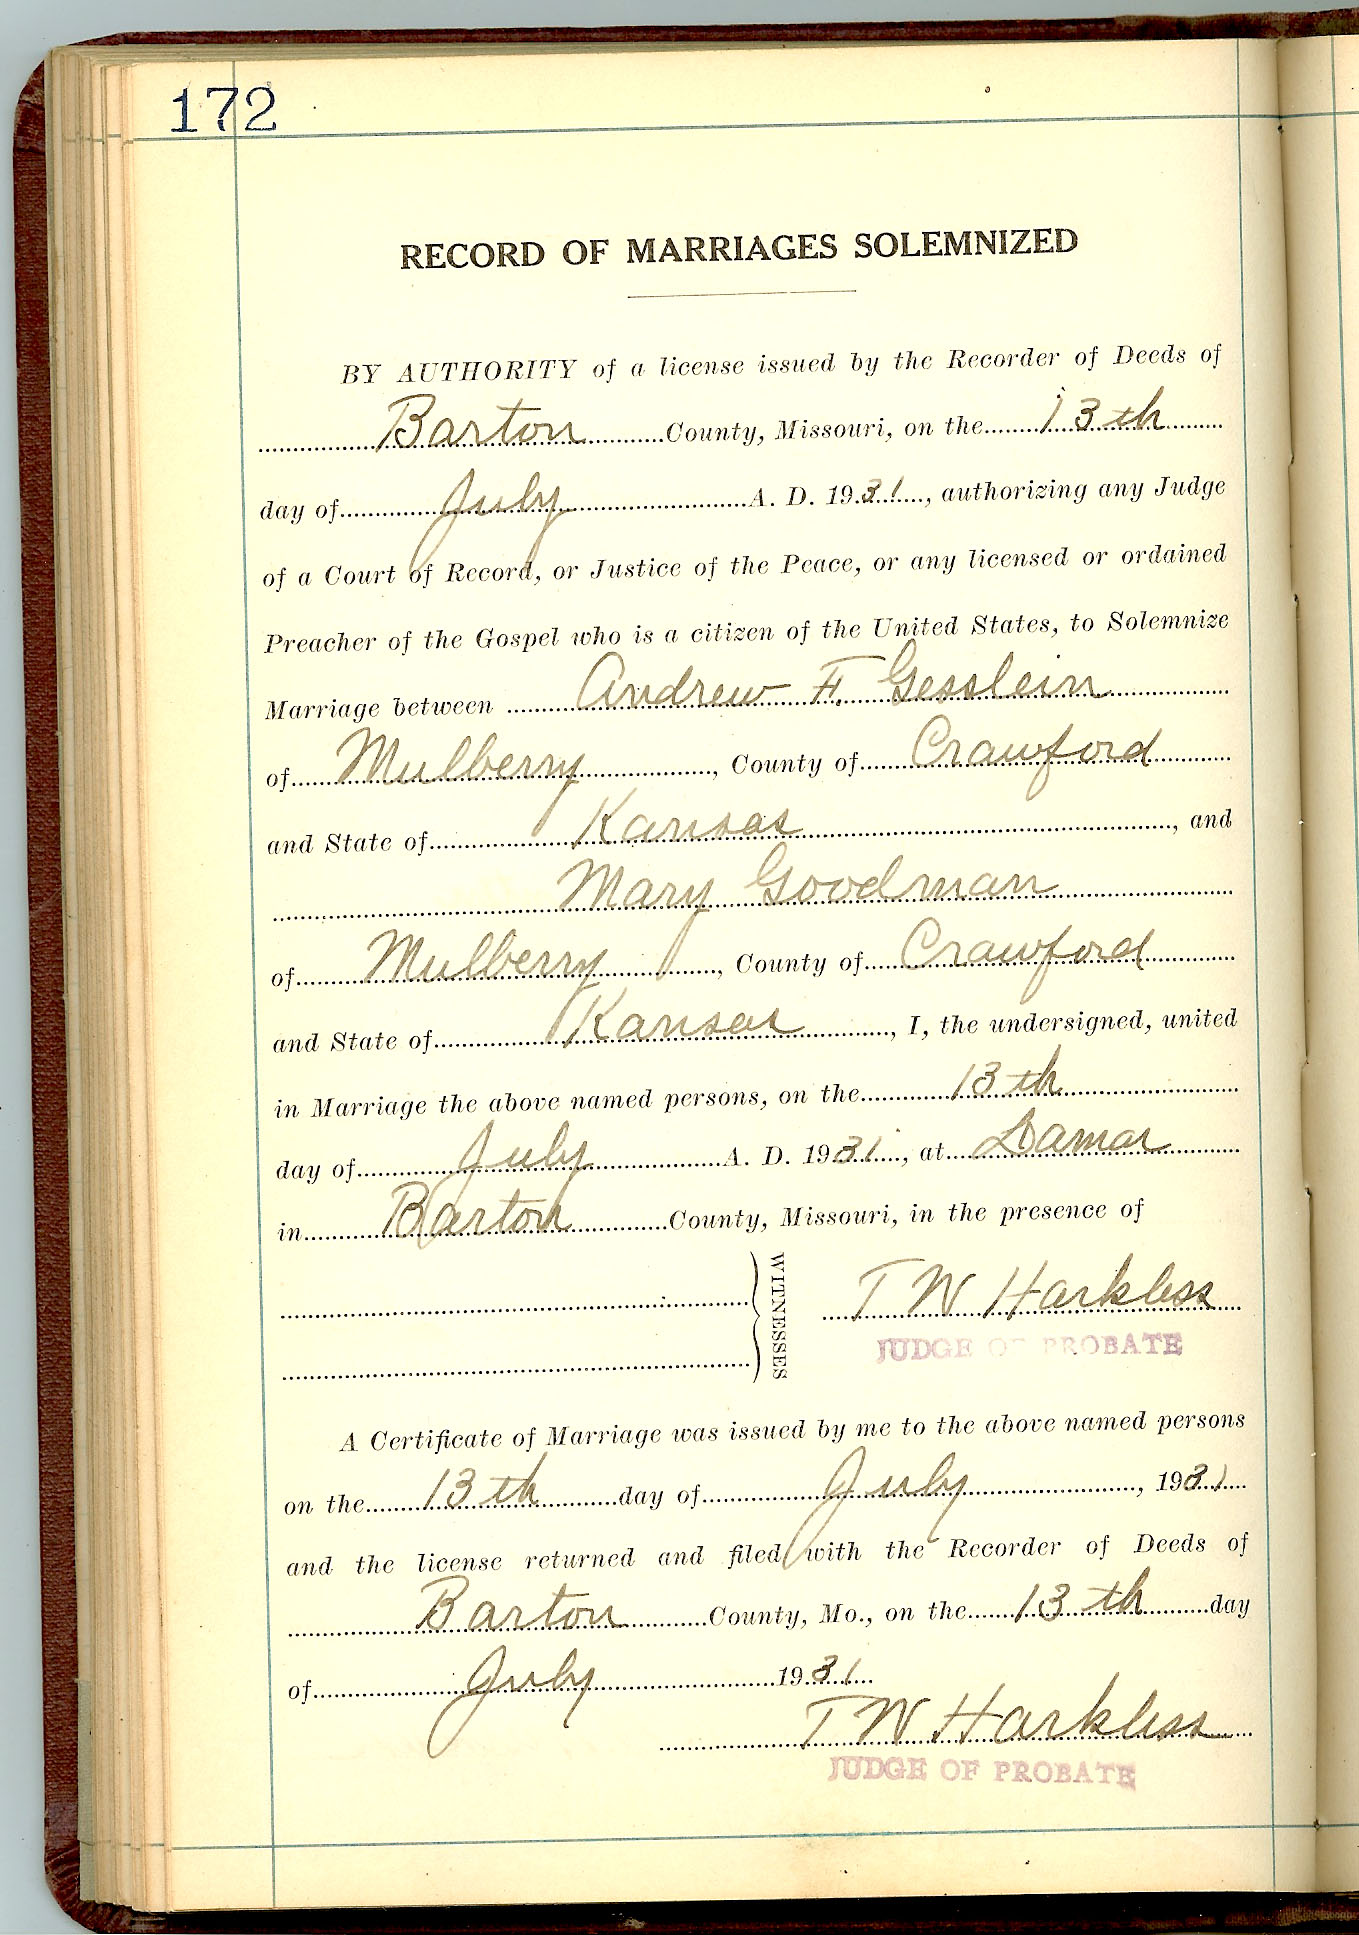 172
RECORD OF MARRIAGES SOLEMNIZED
BY AUTHORITY of a license issued by the Recorder of Deeds of
Barton County, Missouri, on the 13th
day of July A. D. 1931, authorizing any Judge
of a Court of Record, or Justice of the Peace, or any licensed or ordained
Preacher of the Gospel who is a citizen of the United States, to Solemnize
Marriage between Andrew F. Gesslein
of Mulberry, County of Crawford
and State of Kansas, and
Mary Goodman
of Mulberry, County of Crawford
and State of Kansas, I, the undersigned, united
in Marriage the above named persons, on the 13th
day of July A. D. 1931, at Lamar
in Barton County, Missouri, in the presence of
WITNESSES
T W Harkless
JUDGE OF PROBATE
A Certificate of Marriage was issued by me to the above named persons
on the 13th day of July, 1931
and the license returned and filed with the Recorder of Deeds of
Barton County, Mo., on the 13th day
of July 1931
T W Harkless
JUDGE OF PROBATE